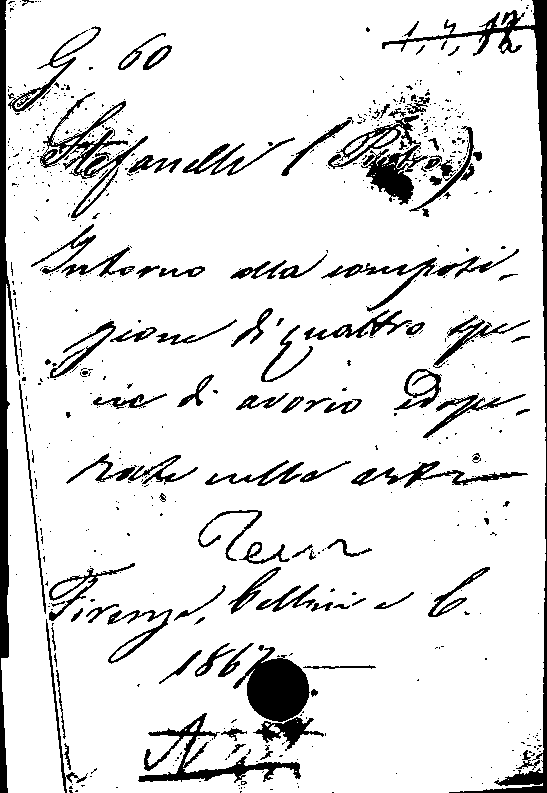 G. 60
1, 7, 12
Stefanelli (Pietro)
Intorno alla composi-
zione di quattro spe-
cie di avorio adope-
rate nelle arti
Firenze, Cellini e C.
1867